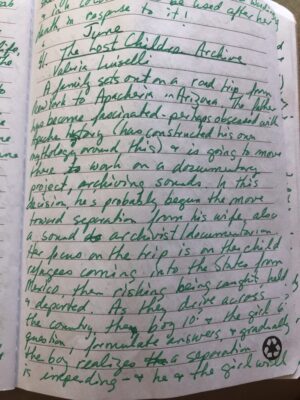 be used after her
death in response to it!
June
4. The Lost Children Archive
Valeria Luiselli
A family sets out on a road trip from
New York to Apacheria in Arizona. The father
has become fascinated - perhaps obsessed with
Apache history (has constructed his own
mythology around this) & is going to move
there to work on a documentary
project, archiving sounds. In this
decision, he's probably begun the move
toward separation from his wife, also
a sound archivist/documentarian.
Her focus on the trip is on the child
refugees coming into the States from
Mexico, then risking being caught, held
& deported. As they drive across
the country, the boy 10? & the girl 6?
question, formulate answers, & gradually
the boy realizes a separation
is impending - & he & the girl will